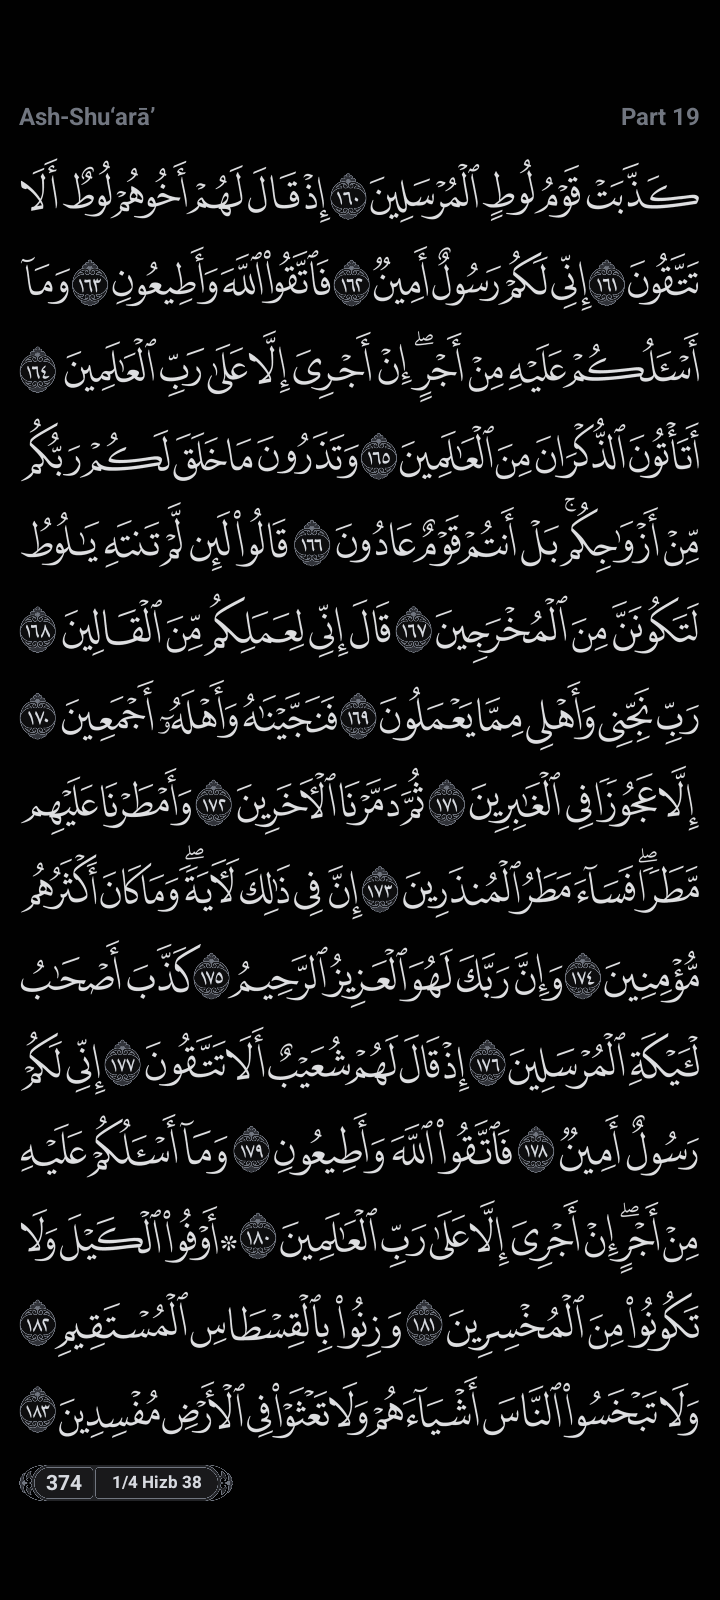 Ash-Shu‘arā’
Part 19
كَذَّبَتْ قَوْمُ لُوطٍ ٱلْمُرْسَلِينَ ١٦٠ إِذْ قَالَ لَهُمْ أَخُوهُمْ لُوطٌ أَلَا
تَتَّقُونَ ١٦١ إِنِّى لَكُمْ رَسُولٌ أَمِينٌ ١٦٢ فَٱتَّقُوا۟ ٱللَّهَ وَأَطِيعُونِ ١٦٣ وَمَآ
أَسْـَٔلُكُمْ عَلَيْهِ مِنْ أَجْرٍ ۖ إِنْ أَجْرِىَ إِلَّا عَلَىٰ رَبِّ ٱلْعَـٰلَمِينَ ١٦٤
أَتَأْتُونَ ٱلذُّكْرَانَ مِنَ ٱلْعَـٰلَمِينَ ١٦٥ وَتَذَرُونَ مَا خَلَقَ لَكُمْ رَبُّكُم
مِّنْ أَزْوَٰجِكُم ۚ بَلْ أَنتُمْ قَوْمٌ عَادُونَ ١٦٦ قَالُوا۟ لَئِن لَّمْ تَنتَهِ يَـٰلُوطُ
لَتَكُونَنَّ مِنَ ٱلْمُخْرَجِينَ ١٦٧ قَالَ إِنِّى لِعَمَلِكُم مِّنَ ٱلْقَالِينَ ١٦٨
رَبِّ نَجِّنِى وَأَهْلِى مِمَّا يَعْمَلُونَ ١٦٩ فَنَجَّيْنَـٰهُ وَأَهْلَهُۥٓ أَجْمَعِينَ ١٧٠
إِلَّا عَجُوزًا فِى ٱلْغَـٰبِرِينَ ١٧١ ثُمَّ دَمَّرْنَا ٱلْـَٔاخَرِينَ ١٧٢ وَأَمْطَرْنَا عَلَيْهِم
مَّطَرًا ۖ فَسَآءَ مَطَرُ ٱلْمُنذَرِينَ ١٧٣ إِنَّ فِى ذَٰلِكَ لَـَٔايَةً ۖ وَمَا كَانَ أَكْثَرُهُم
مُّؤْمِنِينَ ١٧٤ وَإِنَّ رَبَّكَ لَهُوَ ٱلْعَزِيزُ ٱلرَّحِيمُ ١٧٥ كَذَّبَ أَصْحَـٰبُ
لْـَٔيْكَةِ ٱلْمُرْسَلِينَ ١٧٦ إِذْ قَالَ لَهُمْ شُعَيْبٌ أَلَا تَتَّقُونَ ١٧٧ إِنِّى لَكُمْ
رَسُولٌ أَمِينٌ ١٧٨ فَٱتَّقُوا۟ ٱللَّهَ وَأَطِيعُونِ ١٧٩ وَمَآ أَسْـَٔلُكُمْ عَلَيْهِ
مِنْ أَجْرٍ ۖ إِنْ أَجْرِىَ إِلَّا عَلَىٰ رَبِّ ٱلْعَـٰلَمِينَ ١٨٠ ۞ أَوْفُوا۟ ٱلْكَيْلَ وَلَا
تَكُونُوا۟ مِنَ ٱلْمُخْسِرِينَ ١٨١ وَزِنُوا۟ بِٱلْقِسْطَاسِ ٱلْمُسْتَقِيمِ ١٨٢
وَلَا تَبْخَسُوا۟ ٱلنَّاسَ أَشْيَآءَهُمْ وَلَا تَعْثَوْا۟ فِى ٱلْأَرْضِ مُفْسِدِينَ ١٨٣
374 1/4 Hizb 38